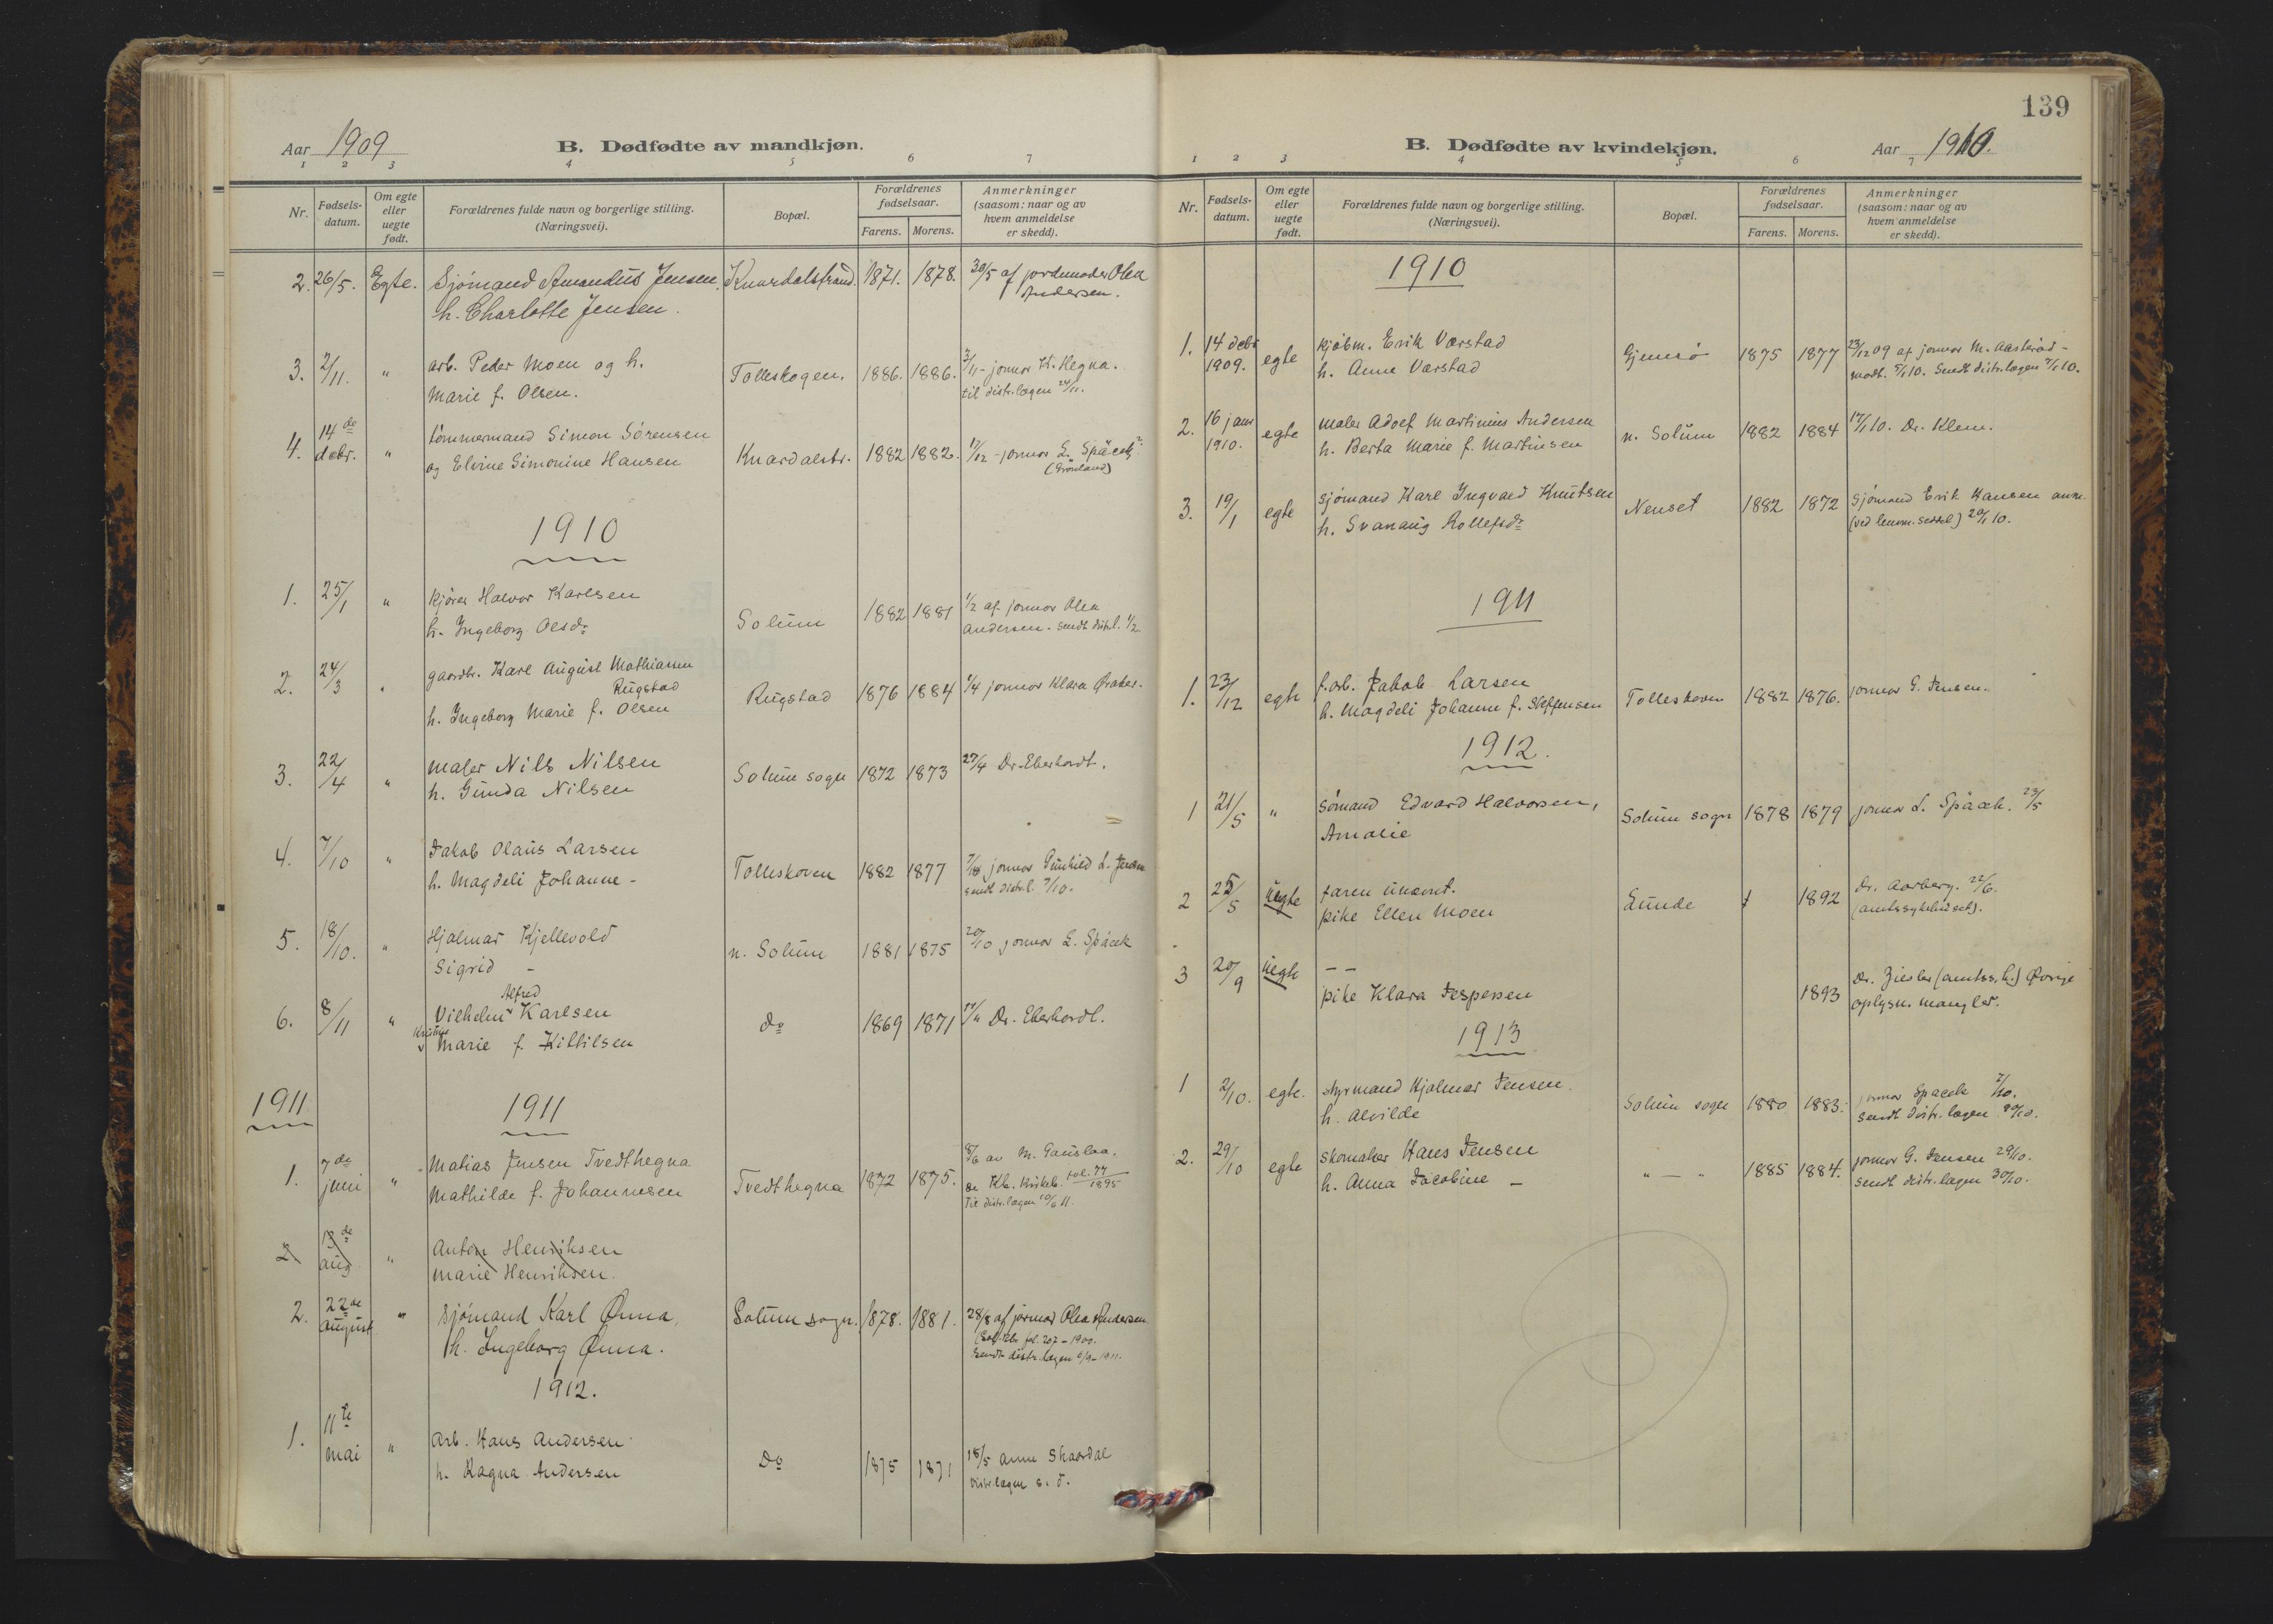 139
Aar 1909
B. Dødfødte av mandkjøn.
1 2 3 4 5 6 7
Nr.
Fødsels-
datum.
Om egte
eller
uegte
født.
Forældrenes fulde navn og borgerlige stilling.
(Næringsvei).
Bopæl.
Forældrenes
fødselsaar.
Farens. Morens.
Anmerkninger
(saasom: naar og av
hvem anmeldelse
er skedd).
2. 26/5. Egte. Sjómand Amandus Jensen, Knardalstrand. 1871. 1878. 30/5 af jordemoder Olea
h. Charlotte Jensen. Andersen.
3. 2/11. " arb. Peder Moen og h. Tolleskogen. 1886. 1886. 3/11 - jormor K. Hegna.
Marie f. Olsen. til distr.lægen 24/11.
4. 14de debr. " tömmermand Simon Sörensen Knardalstr. 1882 1882. 17/12 - jormor L. Späcek
og Elvine Simonine Hansen (Grönland)
1910
1. 25/1 " kjörer Halvor Karlsen Solum 1882 1881 1/2 af jormor Olea
h. Ingeborg Olsdr Andersen. sendt distr.l. 1/2
2. 24/3 " gaardbr. Karl August Mathiassen
Rugstad Rugstad 1876 1884 1/4 jormor Klara Øraker.
h. Ingeborg Marie f. Olsen
3. 22/4 " maler Nils Nilsen Solum sogn 1872 1873 27/4 Dr. Eberhardt.
h. Gunda Nilsen
4. 7/10 " Jakob Olaus Larsen Tolleskoven 1882 1877 7/10 jormor Gunhild L. Jensen
h. Magdeli Johanne - sendt distr.l. 7/10.
5. 18/10. " Hjalmar Kjellevold n. Solum 1881 1875 20/10 jormor L. Späcek
Sigrid -
Alfred
6. 8/11 " Vilhelm Karlsen do 1869 1871 11/11 Dr. Eberhardt.
Kristine
Marie f. Kittilsen
1911 1911
1. 7de juni " Matias Jensen Tvedthegna Tvedthegna 1872 1875. 8/6 av M. Gauslaa.
Mathilde f. Johannesen se Kb. Kirkeb. fol. 77/1895
Til distr.lægen 10/6 11.
2 13de aug " Anton Henriksen
Marie Henriksen.
2. 22de august " Sjömand Karl Ønna, Solum sogn. 1878. 1881. 28/8 af jormor Olea Andersen
h. Ingeborg Ønna. (Sol. Kb. fol. 207 - 1900.
Sendt distr. lægen 6/9 - 1911.
1912.
1. 11te mai " Arb. Hans Andersen Do 1875 1871 18/5 Anne Skaardal
h. Ragna Andersen distr.lægen s. d.
B. Dødfødte av kvindekjøn.
Aar 1910.
1 2 3 4 5 6 7
Nr.
Fødsels-
datum.
Om egte
eller
uegte
født.
Forældrenes fulde navn og borgerlige stilling.
(Næringsvei).
Bopæl.
Forældrenes
fødselsaar.
Farens. Morens.
Anmerkninger
(saasom: naar og av
hvem anmeldelse
er skedd).
1910
1. 14 debr 1909. egte kjöbm. Erik Værstad Gjemsö 1875 1877 23/12 09 af jormor M. Aasteröd -
h. Anne Værstad modt. 5/1 10. Sendt distr.lægen 7/1 10.
2. 16 janr 1910. egte maler Adolf Martinius Andersen n. Solum 1882 1884 17/1 10. Dr. Klem.
h. Berta Marie f. Martinsen
3. 19/1 egte Sjömand Karl Ingvald Knutsen Nenset 1882 1872 Sjömand Erik Hansen anm.
h. Svanaug Rollefsdr (ved lensm. seddel) 20/1 10.
1911
1. 23/12 egte f.arb. Jakob Larsen Tolleskoven 1882 1876. jormor G. Jensen.
h. Magdeli Johanne f. Steffensen
1912.
1 21/5 " Sömand Edvard Halvorsen, Solum sogn 1878 1879 jormor L. Späcek. 23/5
Amalie
2 25/5 uegte faren unævnt. Lunde 1892 Dr. Aarberg. 22/6.
pike Ellen Moen (amtssykehuset).
3 20/9 uegte - - 1893 Dr. Ziesler (amtss.h.) Övrige
pike Klara Jespersen oplysn. mangler.
1913
1 2/10. egte. styrmand Hjalmar Jensen. Solum sogn 1880 1883. jormor Späcek 7/10.
h. Alvilde sendt distr. lægen 20/10.
2. 29/10 egte skomaker Hans Jensen " - " 1885 1884. jormor G. Jensen 29/10.
h. Anna Jacobine - sendt distr. lægen 30/10.